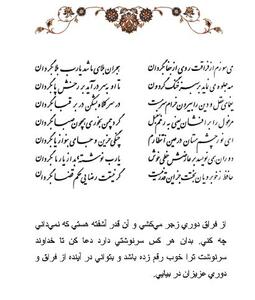 می سوزم از فراقت روی از جفا بگردان
هجران بلای ما شد یا رب بلا بگردان
مه جلوه می نماید بر سبز خنگ گردون
تا او به سر درآید بر رخش پا بگردان
یغمای عقل و دین را بیرون خرام سرمست
در سر کلاه بشکن در بر قبا بگردان
مرغول را برافشان یعنی به رغم سنبل
گرد چمن بخوری همچون صبا بگردان
ای نور چشم مستان در عین انتظارم
چنگ حزین و جامی بنواز یا بگردان
دوران همی نویسد بر عارضش خطی خوش
یا رب نوشته بد از یار ما بگردان
حافظ ز خوبرویان بختت جز این قدر نیست
گر نیستت رضایی حکم قضا بگردان
از فراق دوري زجر مي‌كشي و آن قدر آشفته هستي كه نمي‌داني
چه كني. بدان هر كس سرنوشتي دارد دعا كن تا خداوند
سرنوشت ترا خوب رقم زده باشد و بتواني در آينده از فراق و
دوري عزيزان در بيايي.